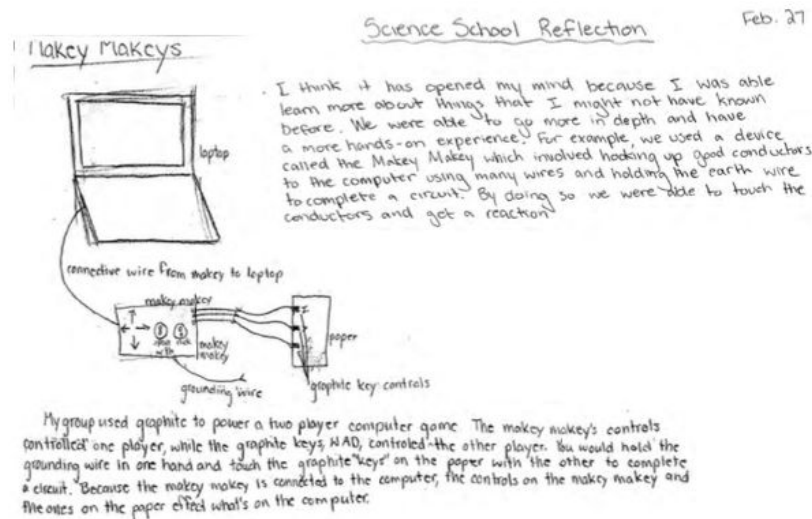 Science School Reflection
Feb. 27
Makey Makeys
I think it has opened my mind because I was able
learn more about things that I might not have known
before. We were able to go more in depth and have
a more hands-on experience. For example, we used a device
called the Makey Makey which involved hooking up good conductors
to the computer using many wires and holding the earth wire
to complete a circuit. By doing so we were able to touch the
conductors and get a reaction
laptop
connective wire from makey to laptop
makey makey
makey
makey
paper
grounding wire
graphite key controls
My group used graphite to power a two player computer game The makey makey's controls
controlled one player, while the graphite keys, WAD, controled the other player. You would hold the
grounding wire in one hand and touch the graphite "keys" on the paper with the other to complete
a circuit. Because the makey makey is connected to the computer, the controls on the makey makey and
the ones on the paper effect what's on the computer.